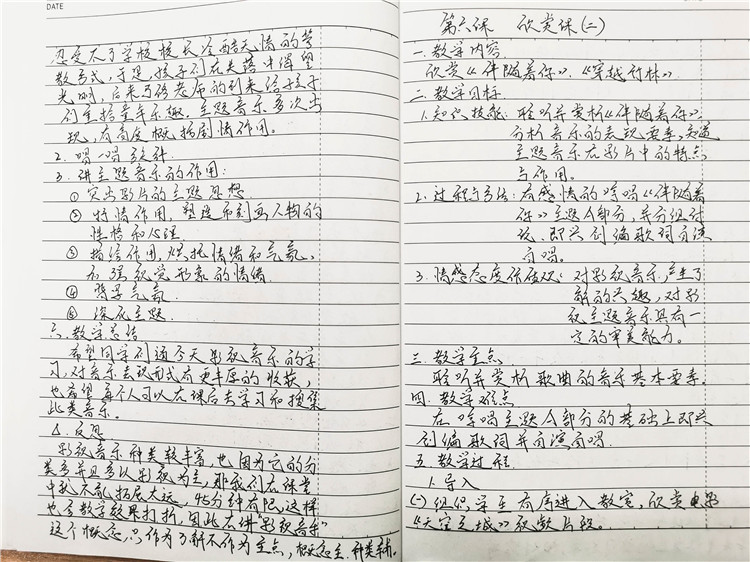 DATE
忍受不了学校校长冷酷无情的管
教方式,于是,孩子们在失落中得望
光明,后来了孩老师的到来给孩子
们重拾童年乐趣。主题音乐多次出
现,有高度概括剧情作用。
2. 唱一唱
3. 讲主题音乐的作用:
① 突出影片的主题思想
② 抒情作用,塑造和刻画人物的
性格和心理.
③ 描绘作用,烘托情绪和气氛、
加强视觉形象的情绪
④ 背景气氛
⑤ 深化主题.
六. 教学总结
希望同学们通今天影视音乐的学
习,对音乐表现形式有更丰厚的收获,
也希望每个人可以在课后去学习和搜集
此类音乐。
△. 反思
影视音乐种类较丰富,也因为它的分
类多并且多以影视为主,那我们在课堂
中就不能拓展太远,45分钟有限,这样
也会教学效果打折,因此在讲"影视音乐"
这个概念,只作为了解不作为重点,概念主.种类辅.
第六课 欣赏课(二)
一. 教学内容
欣赏《伴随着你》.《穿越竹林》
二. 教学目标.
1. 知识技能: 聆听并赏析《伴随着你》.
分析音乐的表现要素,知道
主题音乐在影片中的特点
与作用。
2. 过程与方法: 有感情的哼唱《伴随着
你》主题A部分,并分组讨
论、即兴创编歌词并演
唱。
3. 情感态度价值观: 对影视音乐产生了
新的兴趣,对影
视主题音乐具有一
定的审美能力。
三. 教学重点
聆听并赏析歌曲的音乐基本要素.
四. 教学难点
在哼唱主题A部分的基础上即兴
创编歌词并演唱.
五. 教学过程.
1. 导入
(一) 组织学生有序进入教室,欣赏电影
《天空之城》视频片段。